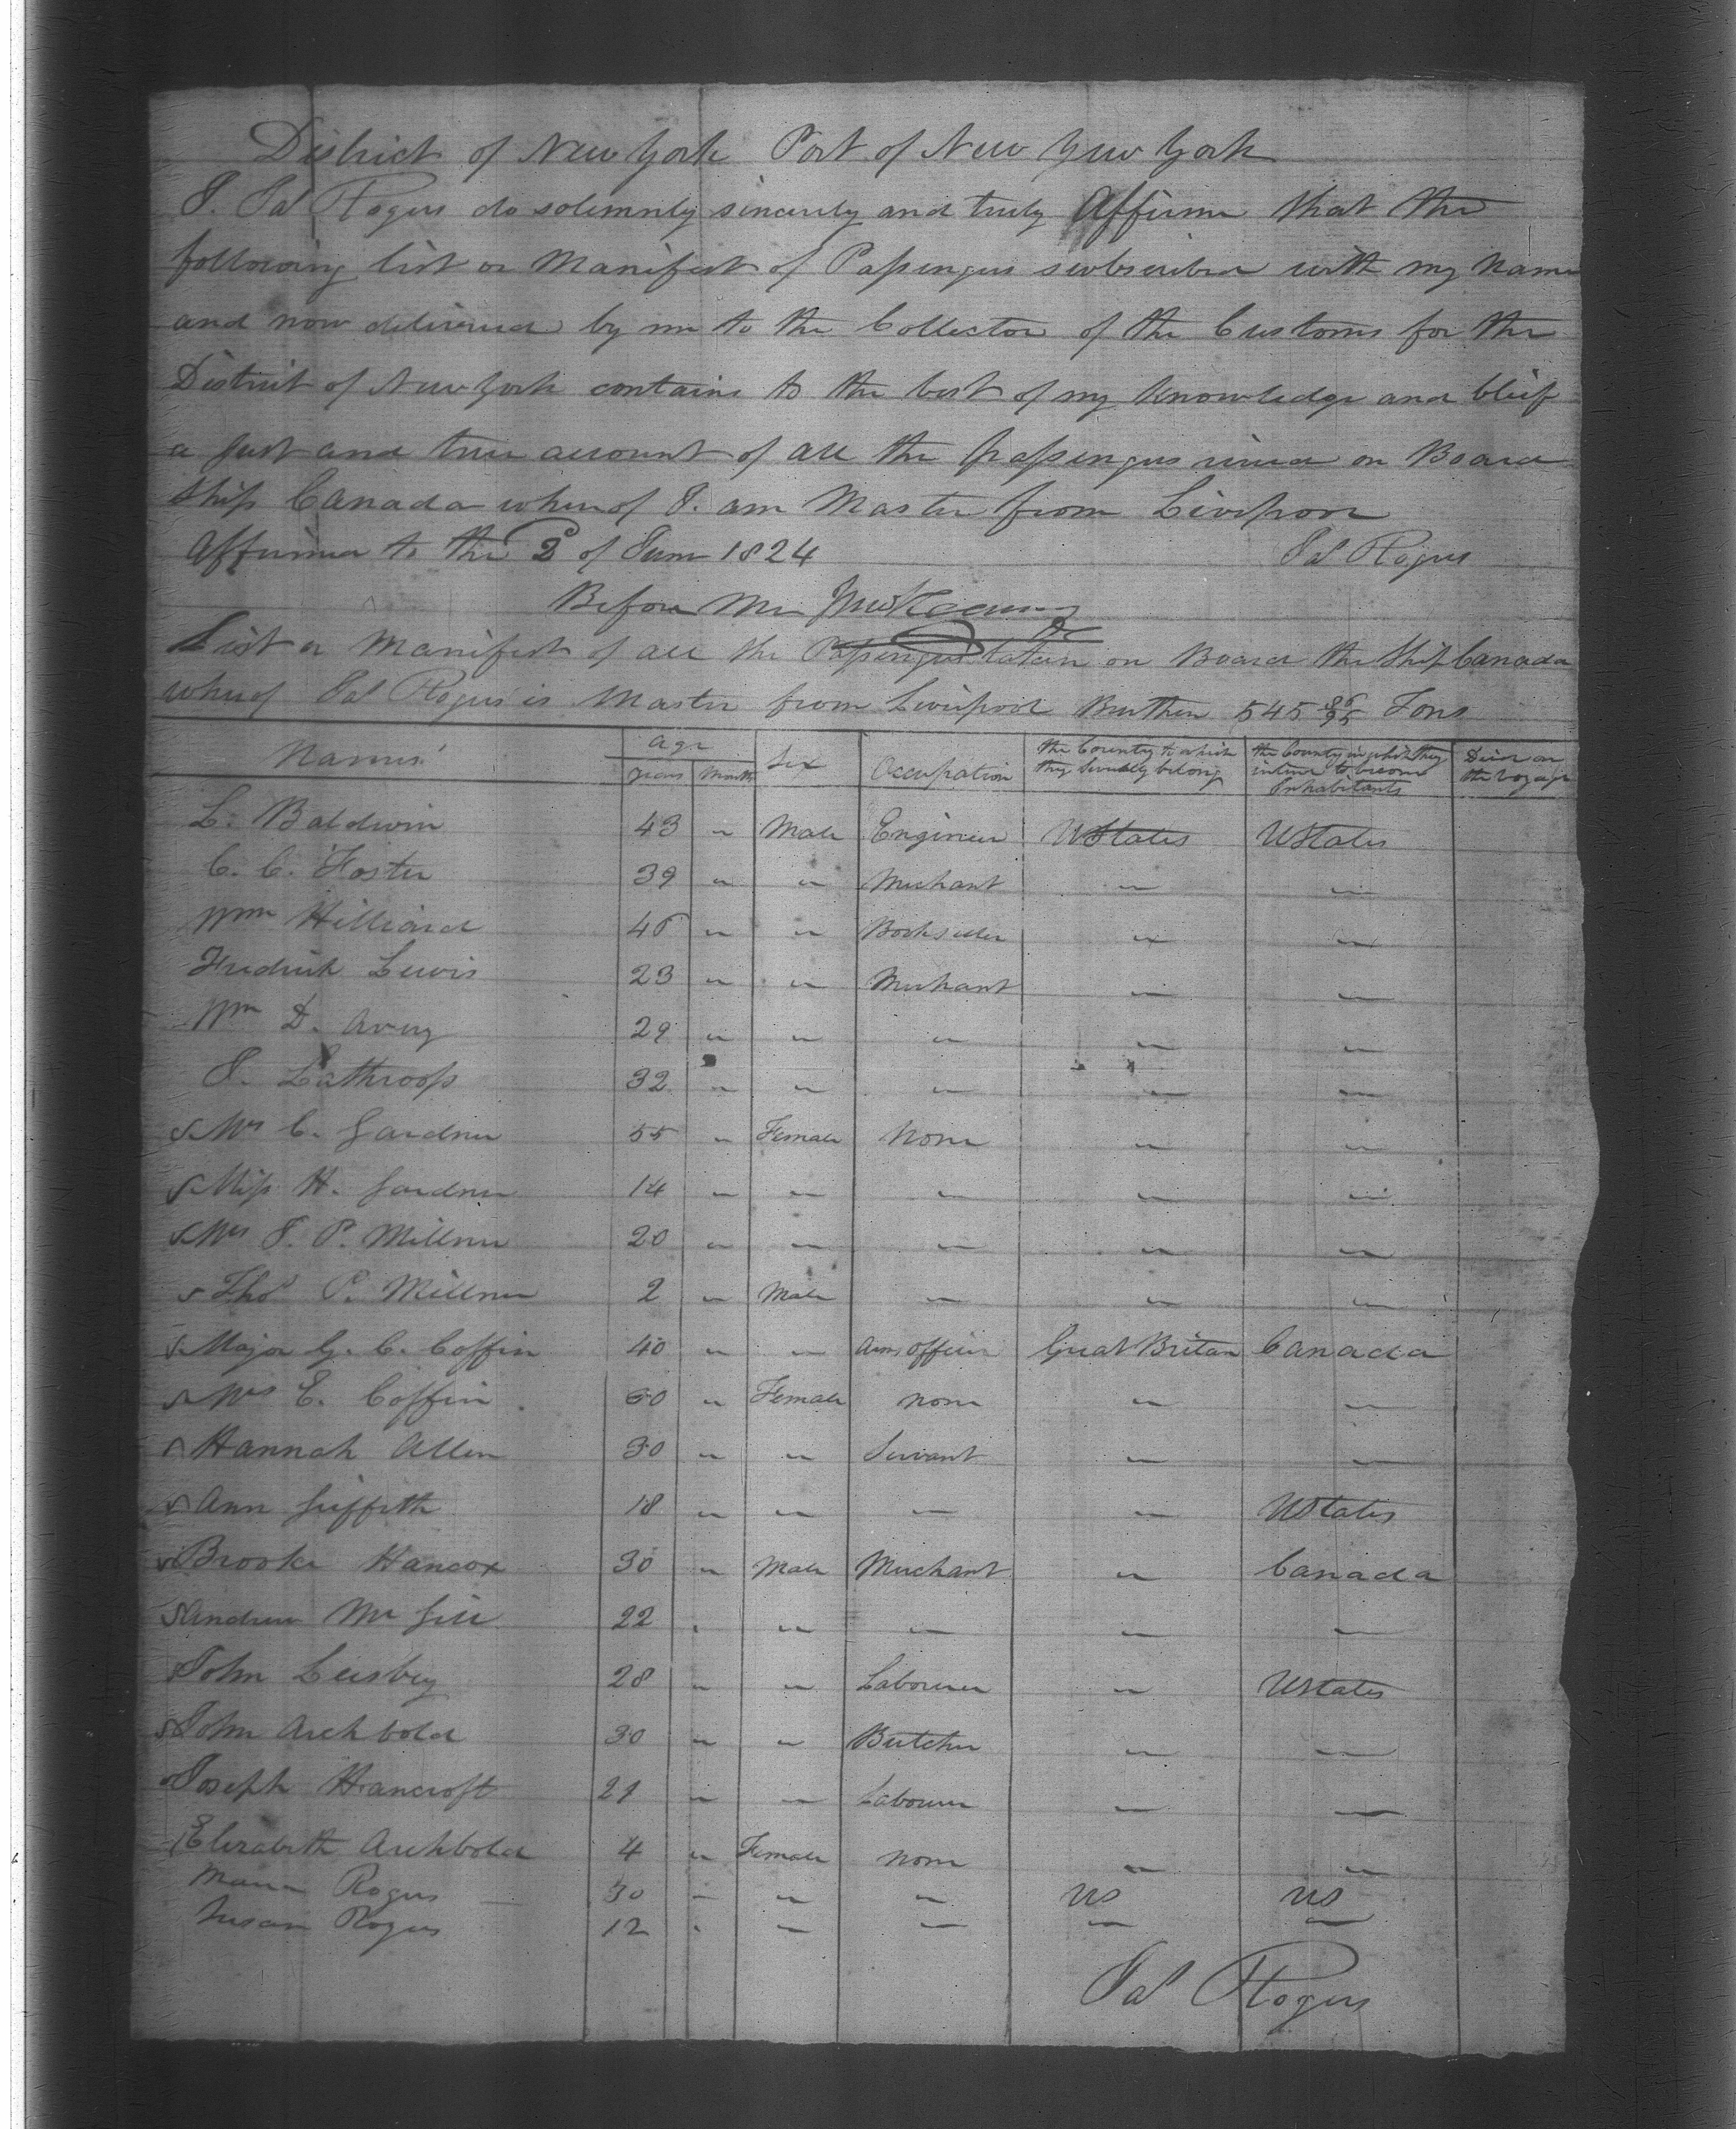 District of New York Port of New Yew York
I. Jas Rogers do solemnly sincerely and truly Affirm that the
following list or Manifest of Passengers subscribed with my Name
and now delivered by me to the Collector of the Customs for the
District of New York contains to the best of my Knowledge and blief
a Just and true account of all the passengers on Board
Ship Canada whereof I. am Master from Liverpool
Affirmed to the 2 of June 1824 Jas Rogers
Before Me
List or Manifest of all the Passengers taken on Board the Ship Canada
whereof Jas Rogers is Master from Liverpool Burthen 545 86/95 Tons
Names Age years Month Sex Occupation the Country to which they Severally belong the Country in which they intend to become Inhabitants Died on the Voyage
L. Baldwin 43 " Male Engineer UStates UStates
C. C. Foster 39 " " Merchant " "
Wm Hilliard 46 " " Bookseller " "
Fredrick Lewis 23 " " Merchant " "
Wm D. Avery 29 " " " " "
J. Lathroop 32 " " " " "
Mrs C. Gardner 55 " Female None " "
Miss H. Gardner 14 " " " " "
Mrs J. P. Millner 20 " " " " "
Thos P. Millner 2 " Male " " "
Major G. C. Coffin 40 " " Arm officer Great Britan Canada
Mrs E. Coffin 30 " Female none " "
Hannah Allen 30 " " Servant " "
Ann Griffith 18 " " " " UStates
Brooke Hancox 30 " Male Merchant " Canada
Andrew Mc Gill 22 " " " " "
John 28 " " Labourer " UStates
John Archbold 30 " " Butcher " "
Joseph Hancroft 29 " " Labourer " "
Elizabeth Archbold 4 " Female none " "
Maria Rogers 30 " " " US US
Susan Rogers 12 " " " " "
Jas Rogers